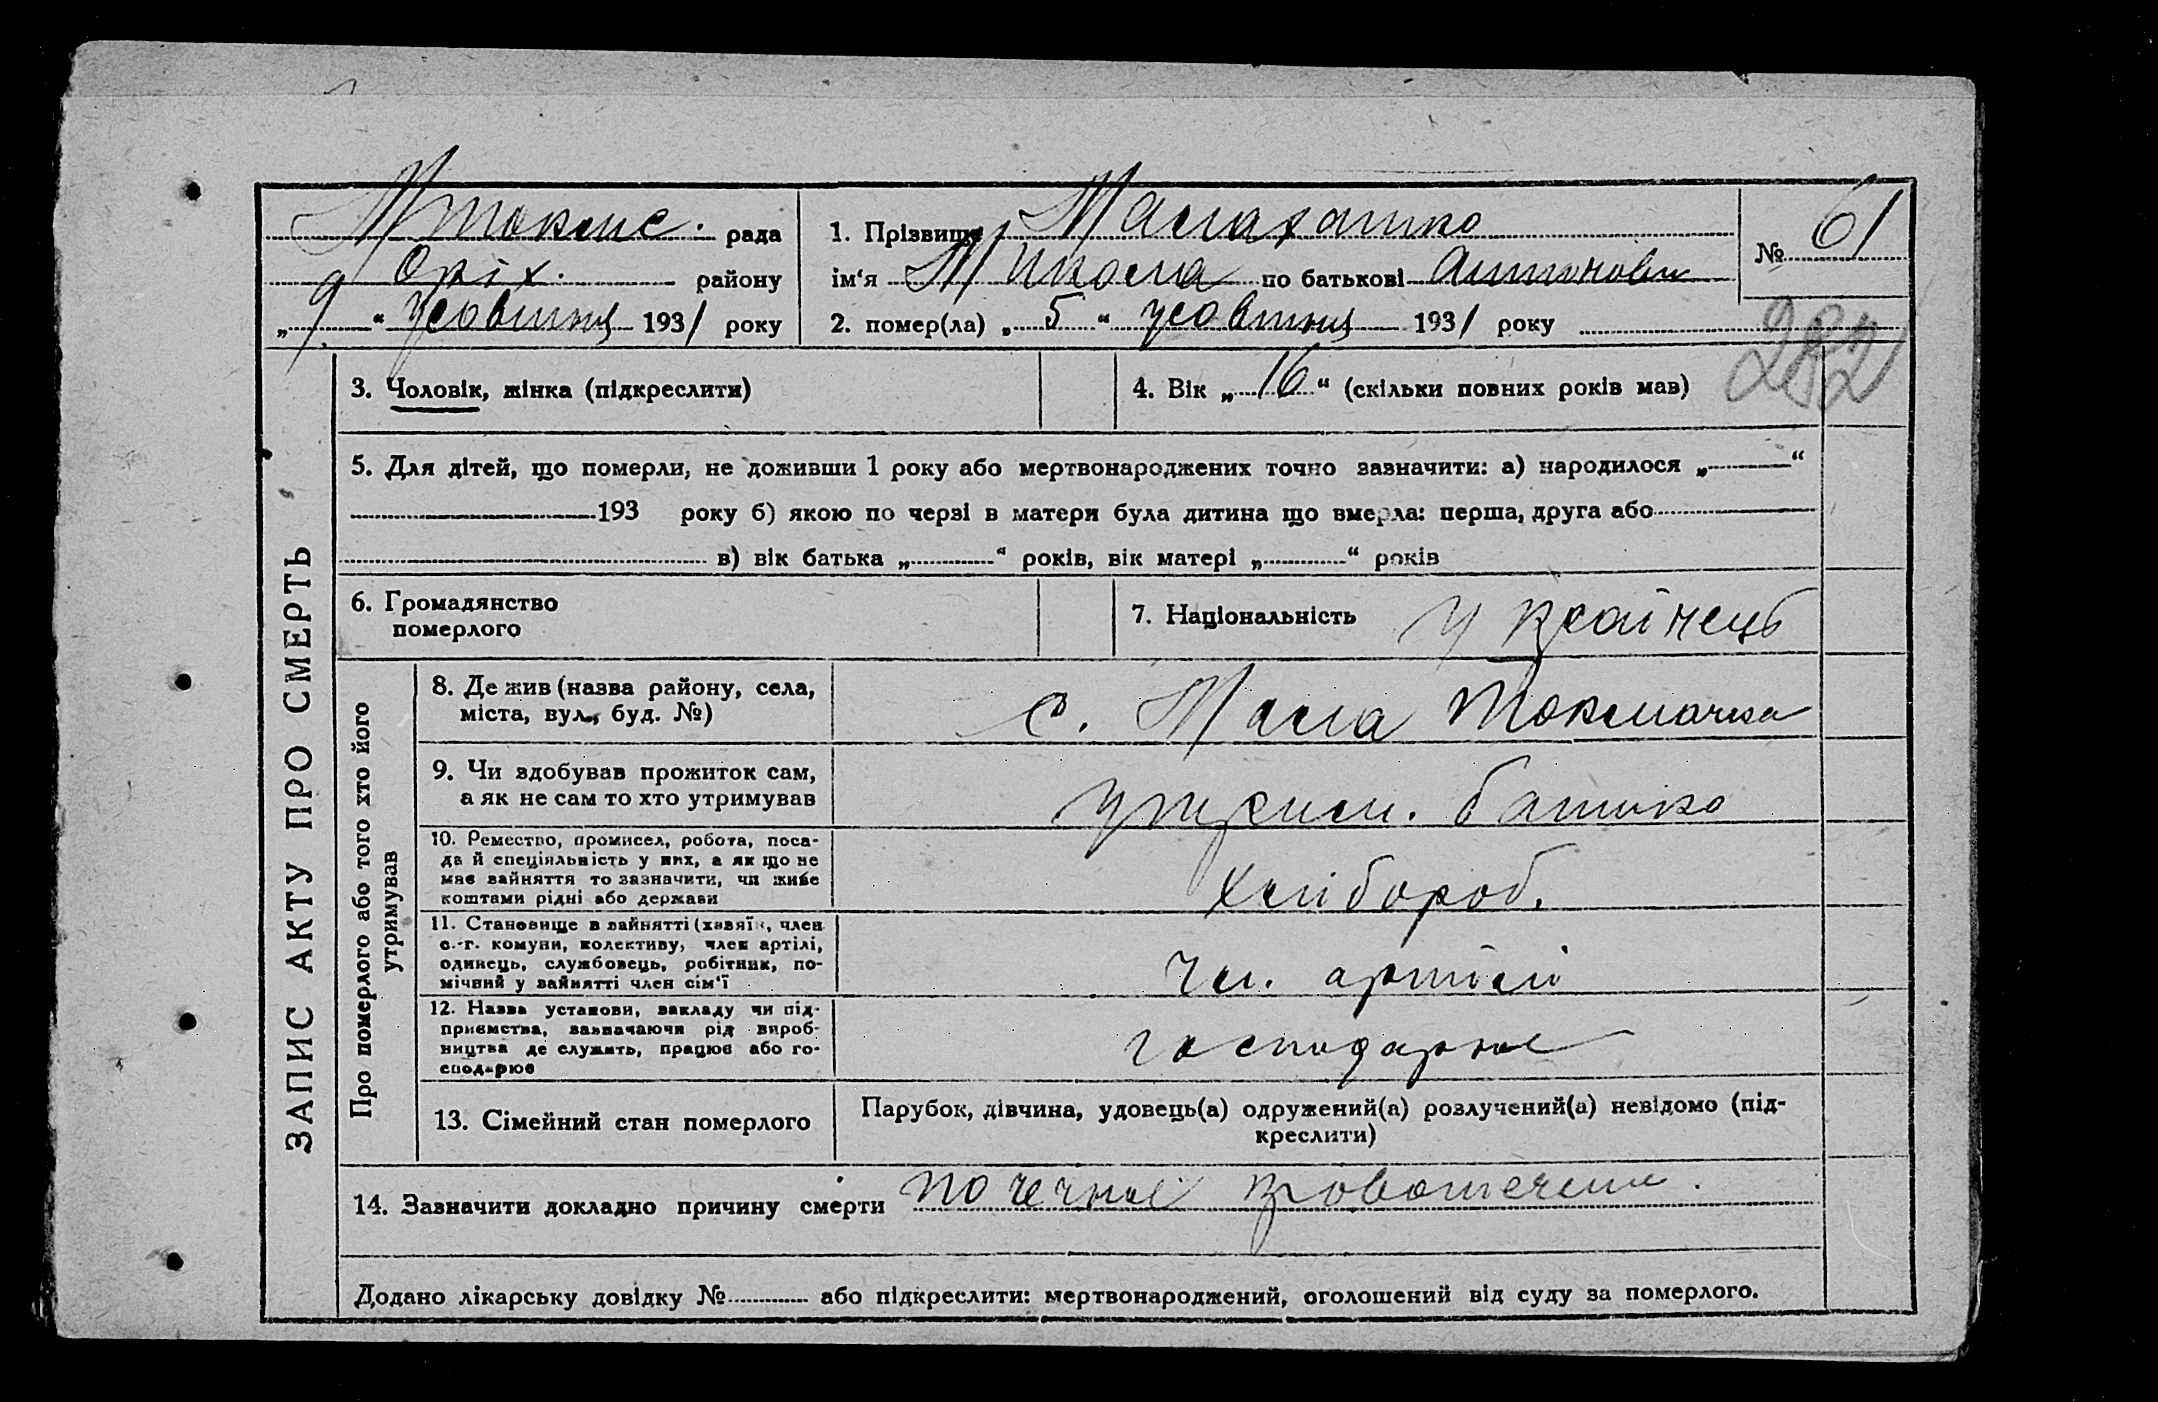 Мтокмс. рада
Оріх. району
„9“ жовтня 1931 року
1. Прізвище Малахатко
ім‘я Микола по батькові Антонови
2. помер(ла) „5“ жовтня 1931 року
№ 61
282
ЗАПИС АКТУ ПРО СМЕРТЬ
3. Чоловік, жінка (підкреслити)
4. Вік „16“ (скільки повних років мав)
5. Для дітей, що померли, не доживши 1 року або мертвонароджених точно зазначити: а) народилося „ “
193 року б) якою по черзі в матери була дитина що вмерла: перша, друга або
в) вік батька „ “ років, вік матері „ “ років
6. Громадянство
померлого
7. Національність українець
Про померлого або того хто його
утримував
8. Де жив (назва району, села,
міста, вул., буд. №)
с. Мала Токмачка
9. Чи здобував прожиток сам,
а як не сам то хто утримував
утрим. батько
10. Ремество, промисел, робота, поса-
да й спеціяльність у них, а як що не
має зайняття то зазначити, чи живе
коштами рідні або держави
хлібороб.
11. Становище в зайнятті (хазяїн, член
с.-г. комуни, колективу, член артілі,
одинець, службовець, робітник, по-
мічний у зайнятті член сім‘ї
чл. артілі
12. Назва установи, закладу чи під-
приємства, зазначаючи рід вироб-
ництва де служить, працює або го-
сподарює
господарює
13. Сімейний стан померлого
Парубок, дівчина, удовець(а) одружений(а) розлучений(а) невідомо (під-
креслити)
14. Зазначити докладно причину смерти почечное кровотечение.
Додано лікарську довідку № або підкреслити: мертвонароджений, оголошений від суду за померлого.